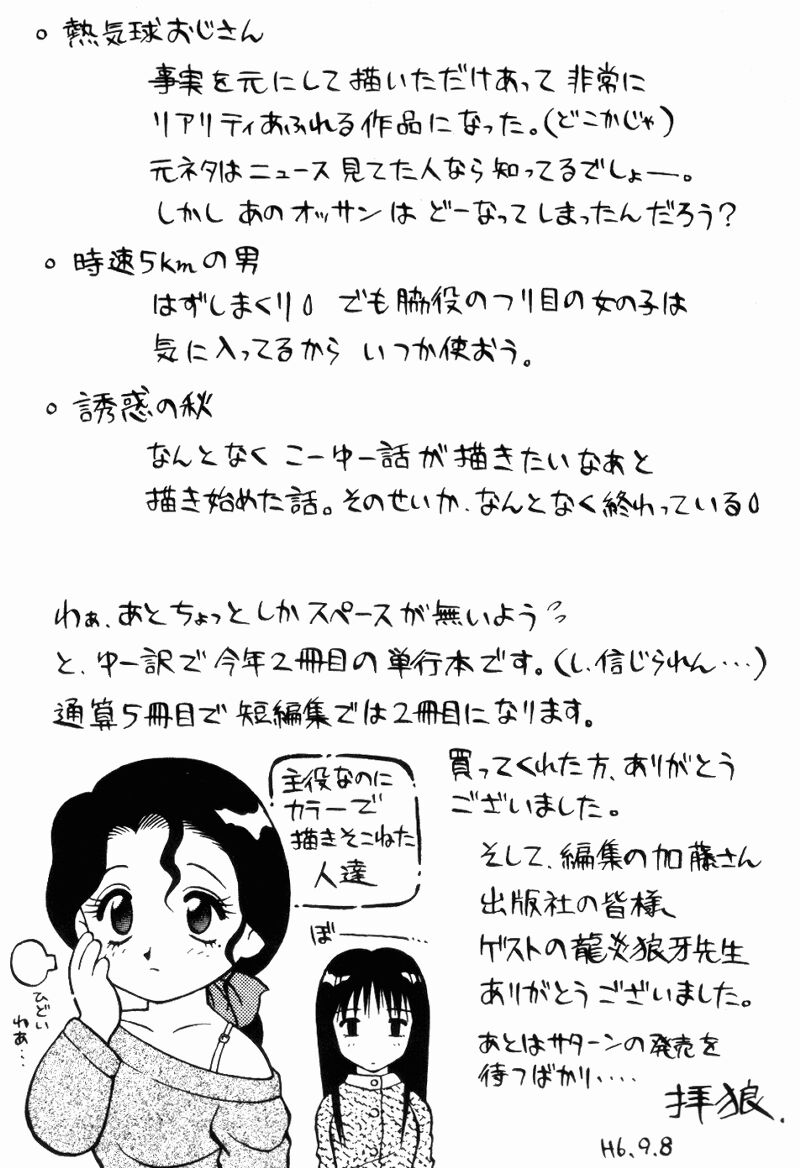 ○ 熱気球おじさん
事実を元にして描いただけあって非常に
リアリティあふれる作品になった。(どこかじゃ)
元ネタはニュース見てた人なら知ってるでしょー。
しかしあのオッサンはどーなってしまったんだろう?
○ 時速5kmの男
はずしまくり でも脇役のつり目の女の子は
気に入ってるから いつか使おう。
○ 誘惑の秋
なんとなく こーゆー話が描きたいなあと
描き始めた話。そのせいか、なんとなく終わっている
わぁ、あとちょっとしかスペースが無いよう
と、ゆー訳で今年2冊目の単行本です。(し、信じられん…)
通算5冊目で短編集では2冊目になります。
買ってくれた方、ありがとう
ございました。
そして、編集の加藤さん
出版社の皆様、
ゲストの龍炎狼牙先生
ありがとうございました。
あとはサターンの発売を
待つばかり‥‥
拝狼.
H6.9.8
主役なのに
カラーで
描きそこねた
人達
ぼー
ひどい
わぁ…